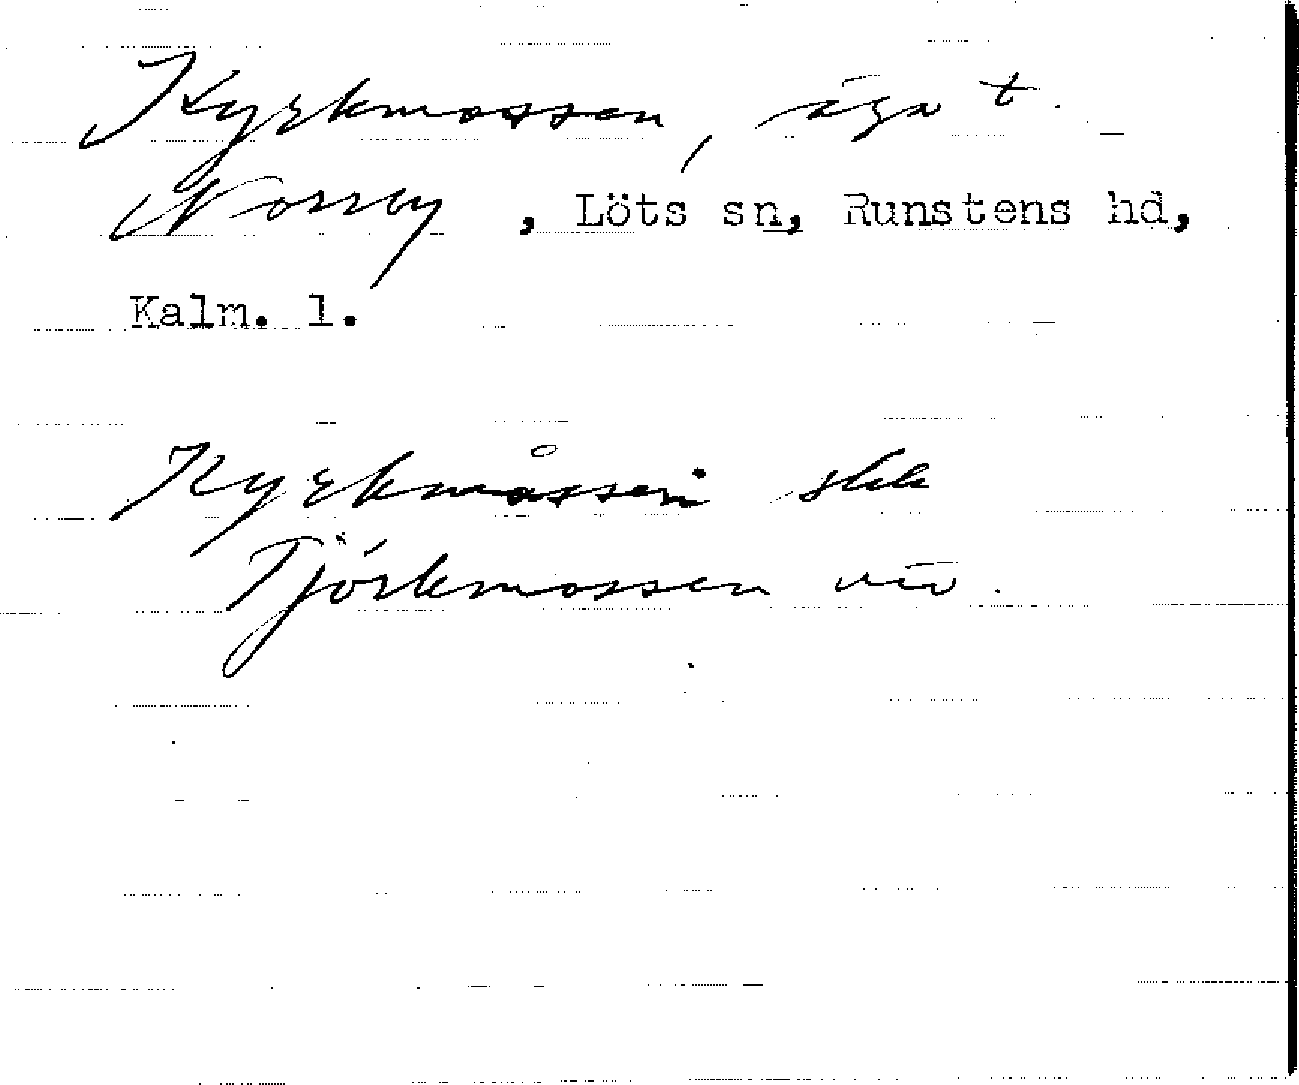 Kyrkmossen, äga t.
Norrby, Löts sn, Runstens hd,
Kalm. l.
Kyrkmåssen
Tjörkmossen